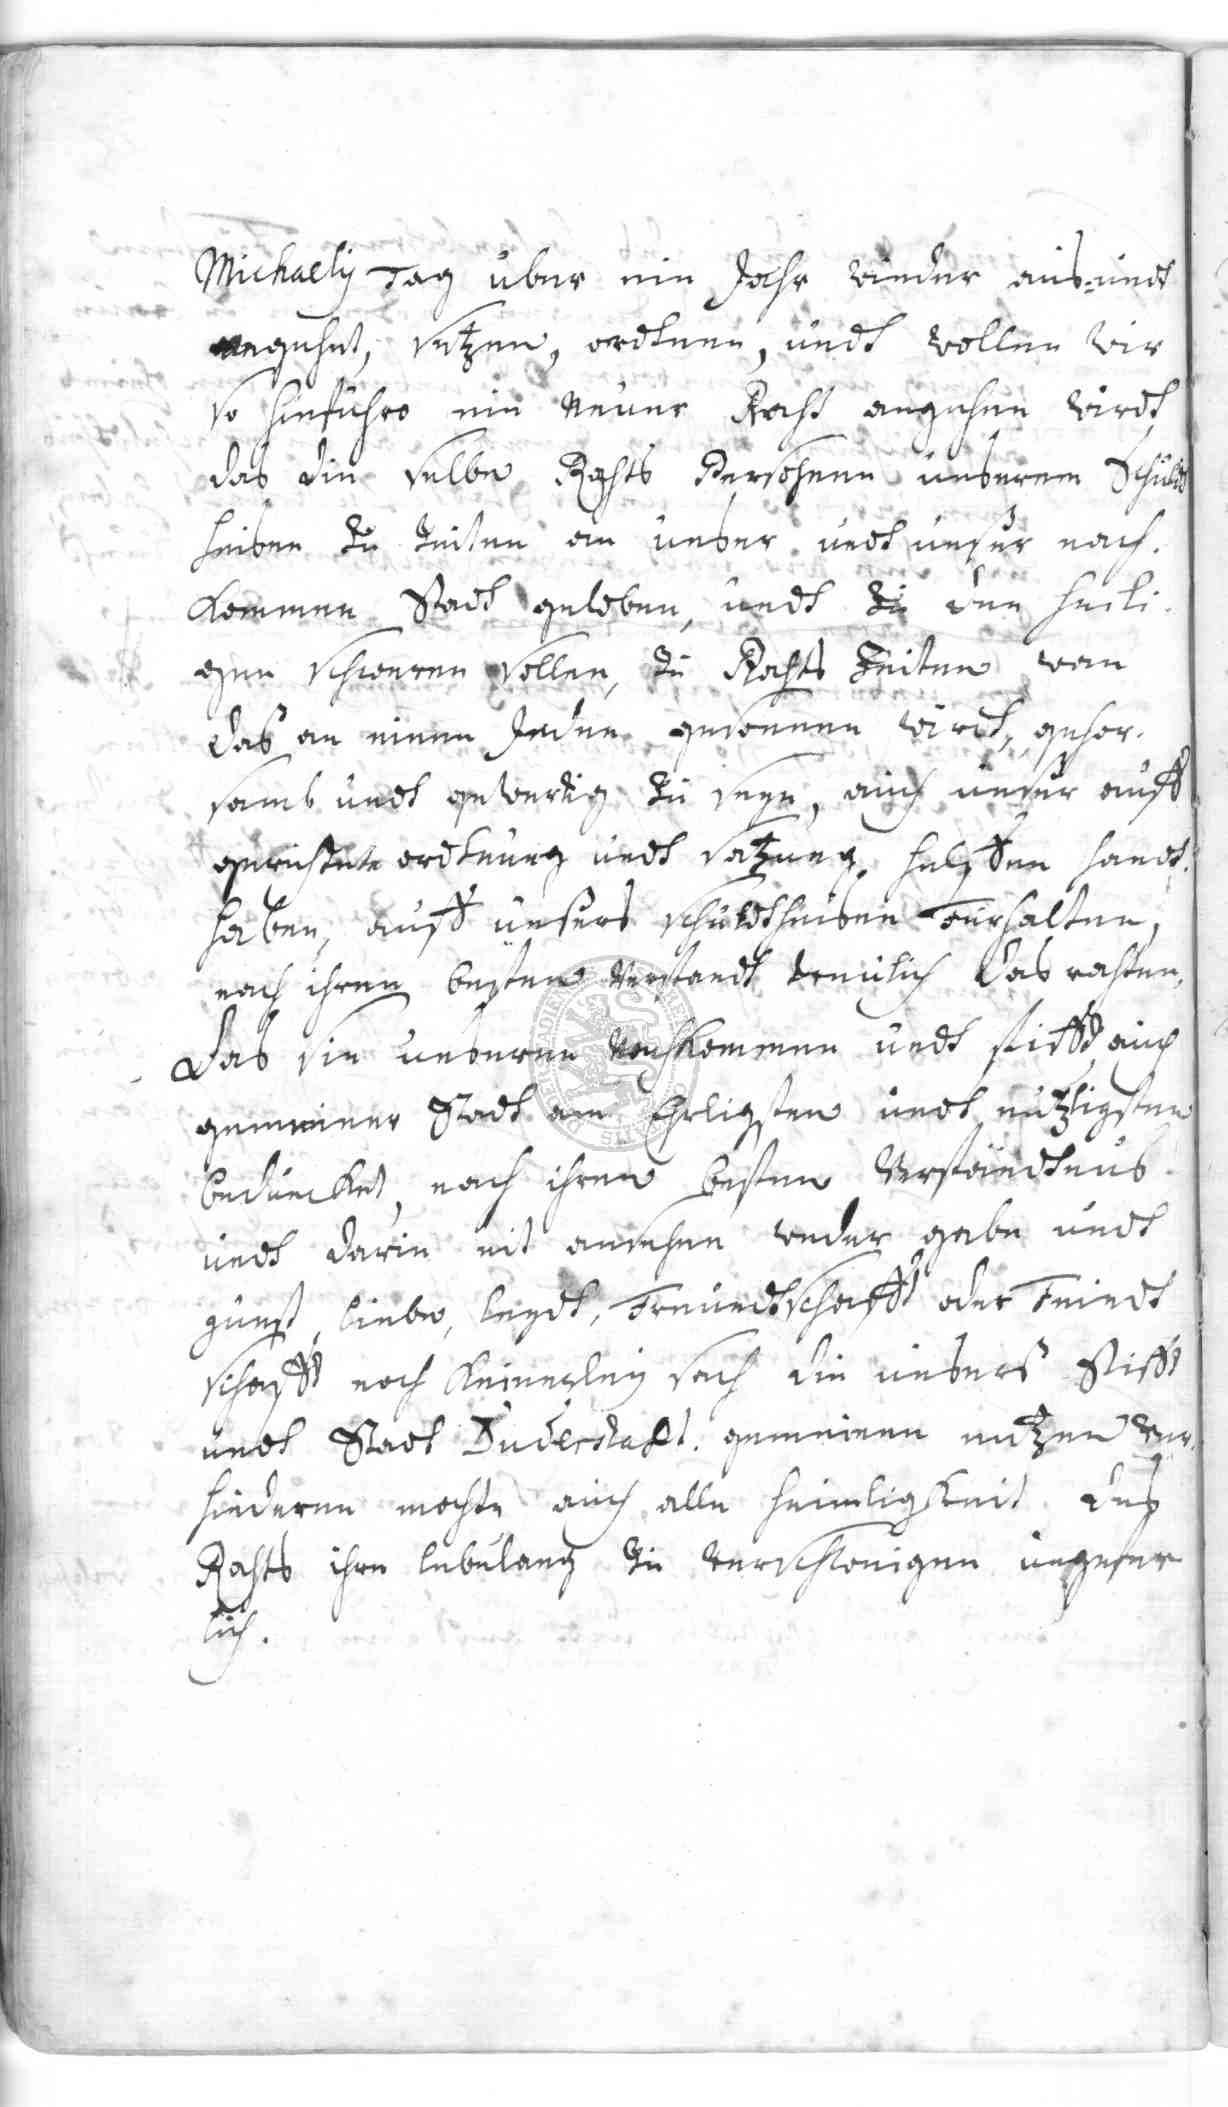 Michaelis Tag uber ein Jahr wieder aus undt
angehet, setzen, ordtnen, undt wollen wir
so hinfuhro ein Neuer Raht angehen wirdt,
das die selbe Rahts Persohnen unserem Schuldt
heisen zu Zeiten an unser undt unser nach.
kommen Stadt geloben, undt zu den heili.
gen schweren sollen, zu Rahts Zeiten wan
das an einen Jeden gesonnen wirdt, gehor.
samb undt gewertig zu seyn, auch unser auff
gerichtete ordtnung undt satzung helffen handt.
haben, auff unsers schuldtheisen Furhalten,
nach ihren besten Verstandt treulich das rahten,
Das sie unseren Nachkommen undt stifft auch
gemeiner Stadt am Ehrligsten undt nutzligsten
beduncket, nach ihren besten Verständtnus
undt darin nit ansehen weder gabe undt
gunst, liebe, leydt, Freundtschafft oder Feindt
schafft noch keinerley sach die unsers Stifft
undt Stadt Duderstadt. gemeinen nutzen ver.
hinderen mochte auch alle heimligkeit des
Rahts ihre lebulang zu verschweigen ungefer
lich.